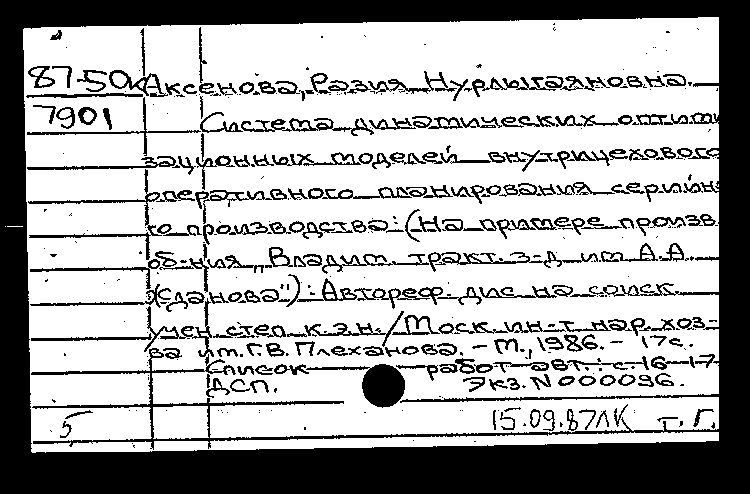 87-50к Аксенова, Разия Нурлыгаяновна.
7901 Система динамических оптими
зационных моделей внутрицехового
оперативного планирования серийн
го производства: (На примере произв
об-ния „Владим. тракт. з-д им А.А
Жданова"): Автореф. дис на соиск
учен степ к.э.н. / Моск. ин-т нар. хоз-
ва им. Г.В. Плеханова. - М., 1986. - 17с.
Список работ авт.: с. 16-17
ДСП. Экз. N 000096.
5 15.09.87ЛК т. Г.